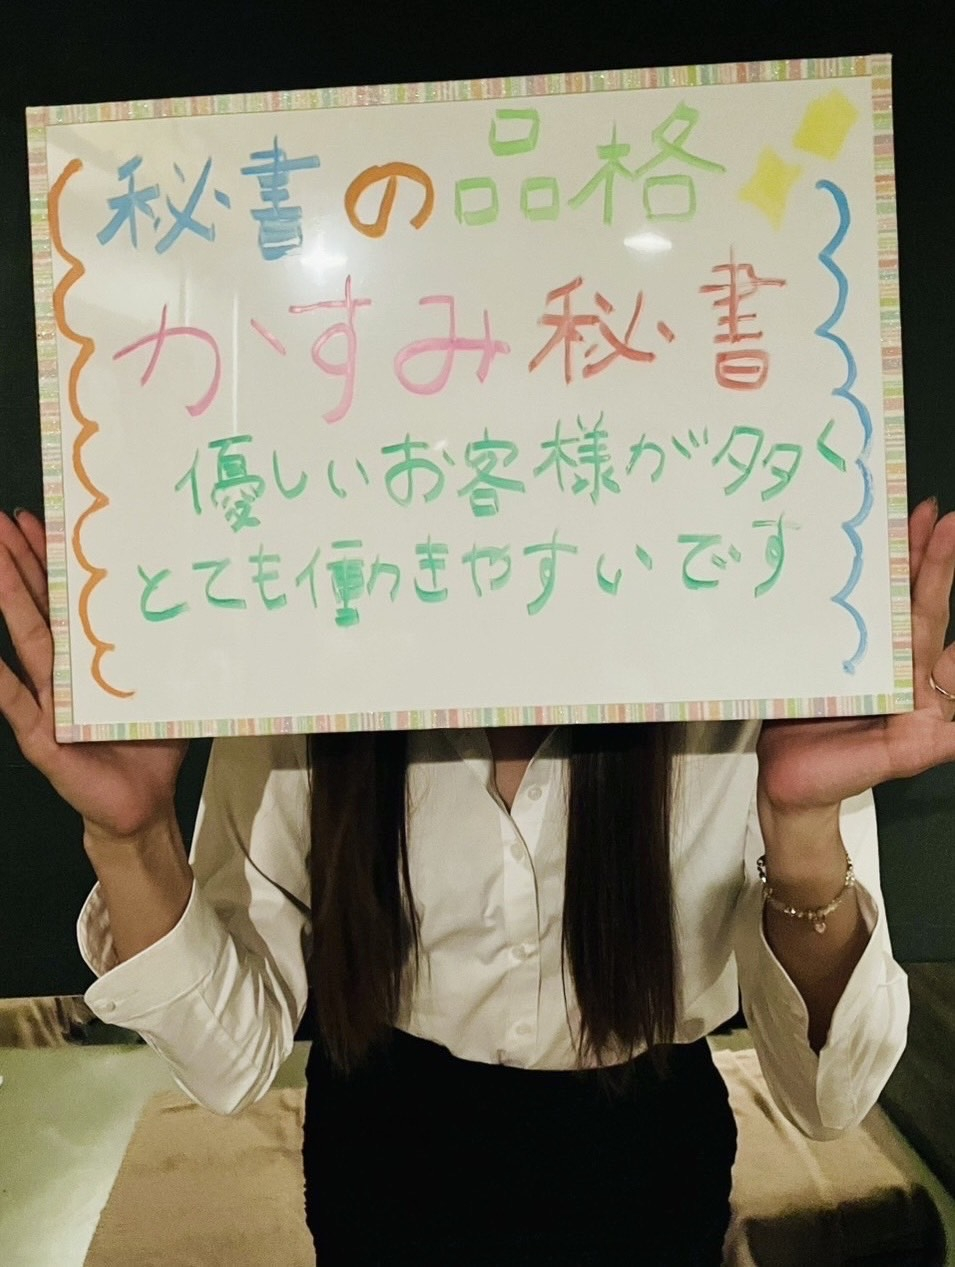 秘書の品格
かすみ秘書
優しいお客様が多く
とても働きやすいです